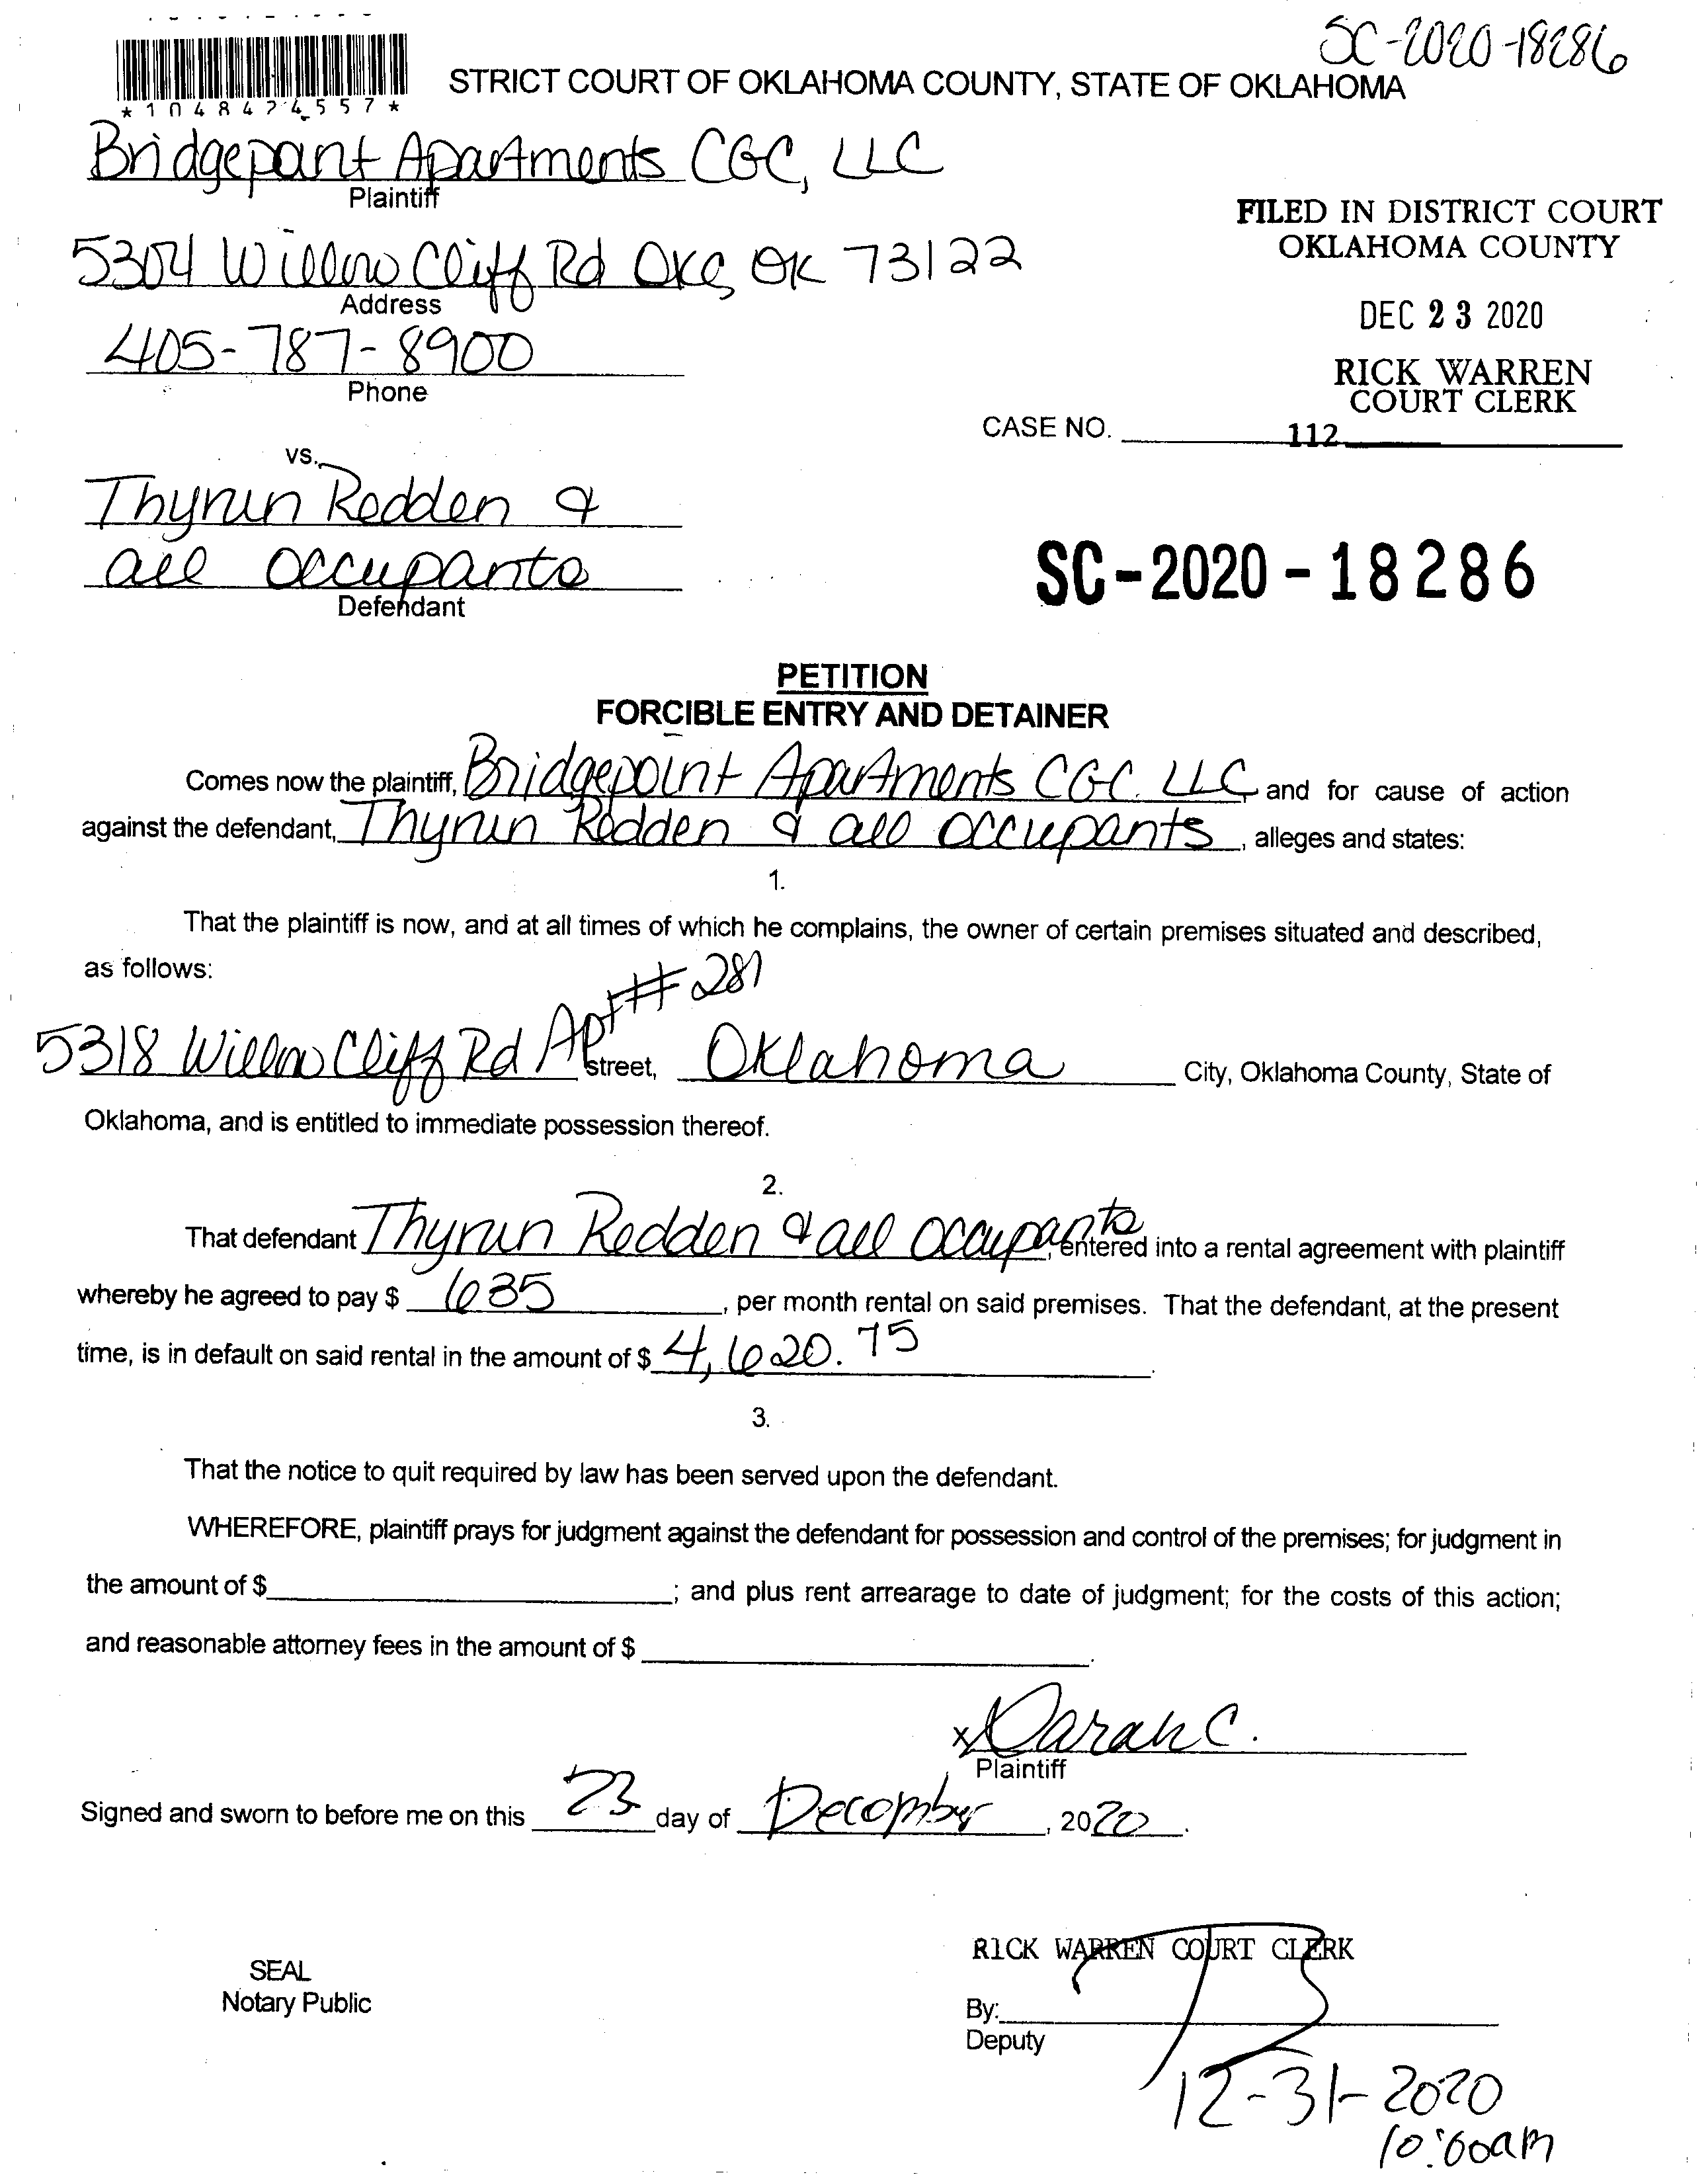 SC-2020-18286
*1048424557*
STRICT COURT OF OKLAHOMA COUNTY, STATE OF OKLAHOMA
Bridgepoint Apartments CGC, LLC
Plaintiff
FILED IN DISTRICT COURT
OKLAHOMA COUNTY
5304 Willow Cliff Rd OKC, OK 73122
Address
DEC 23 2020
405-787-8900
Phone
RICK WARREN
COURT CLERK
CASE NO. 112
vs.
Thyrun Redden &
all occupants
Defendant
SC-2020-18286
PETITION
FORCIBLE ENTRY AND DETAINER
Comes now the plaintiff, Bridgepoint Apartments CGC. LLC, and for cause of action
against the defendant, Thyrun Redden & all occupants, alleges and states:
1.
That the plaintiff is now, and at all times of which he complains, the owner of certain premises situated and described,
as follows:
5318 Willow Cliff Rd Apt # 281 street, Oklahoma City, Oklahoma County, State of
Oklahoma, and is entitled to immediate possession thereof.
2.
That defendant Thyrun Redden & all occupants, entered into a rental agreement with plaintiff
whereby he agreed to pay $ 635, per month rental on said premises. That the defendant, at the present
time, is in default on said rental in the amount of $ 4,620.75.
3.
That the notice to quit required by law has been served upon the defendant.
WHEREFORE, plaintiff prays for judgment against the defendant for possession and control of the premises; for judgment in
the amount of $ ; and plus rent arrearage to date of judgment; for the costs of this action;
and reasonable attorney fees in the amount of $ .
x Sarah C.
Plaintiff
Signed and sworn to before me on this 23 day of December, 2020.
RICK WARREN COURT CLERK
SEAL
Notary Public
By:
Deputy
12-31-2020
10:00am